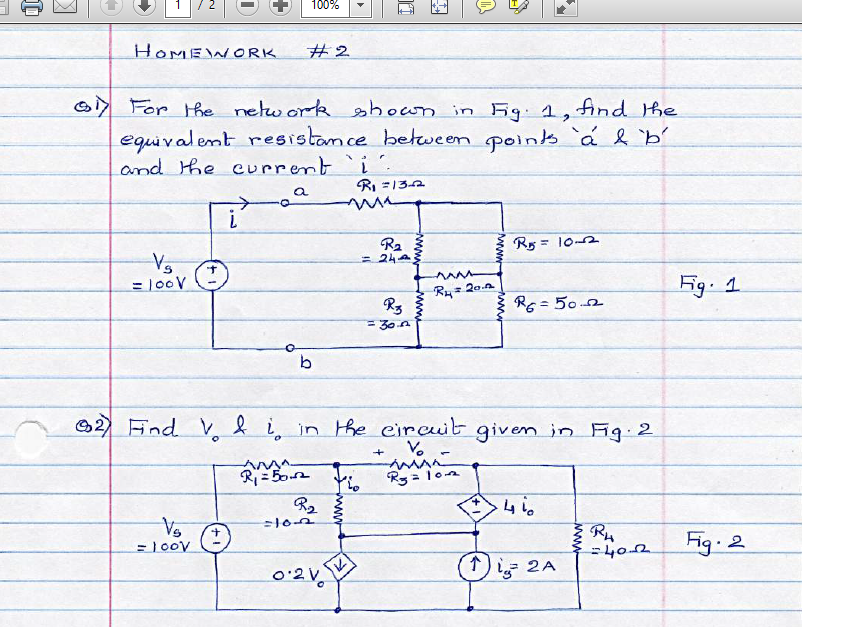 1 / 2 100%
HOMEWORK #2
Q1) For the network shown in Fig. 1, find the
equivalent resistance between points 'a' & 'b'
and the current 'i'.
a R₁ = 13Ω
i
R₂ = 24Ω
R₅ = 10Ω
Vs = 100V
+
-
R₄ = 20Ω
Fig. 1
R₃ = 30Ω
R₆ = 50Ω
b
Q2) Find V₀ & i₀ in the circuit given in Fig. 2
+ V₀ -
R₁ = 50Ω
i₀
R₃ = 10Ω
R₂ = 10Ω
+
-
4i₀
Vs = 100V
+
-
R₄ = 40Ω
Fig. 2
0.2V₀
is = 2A